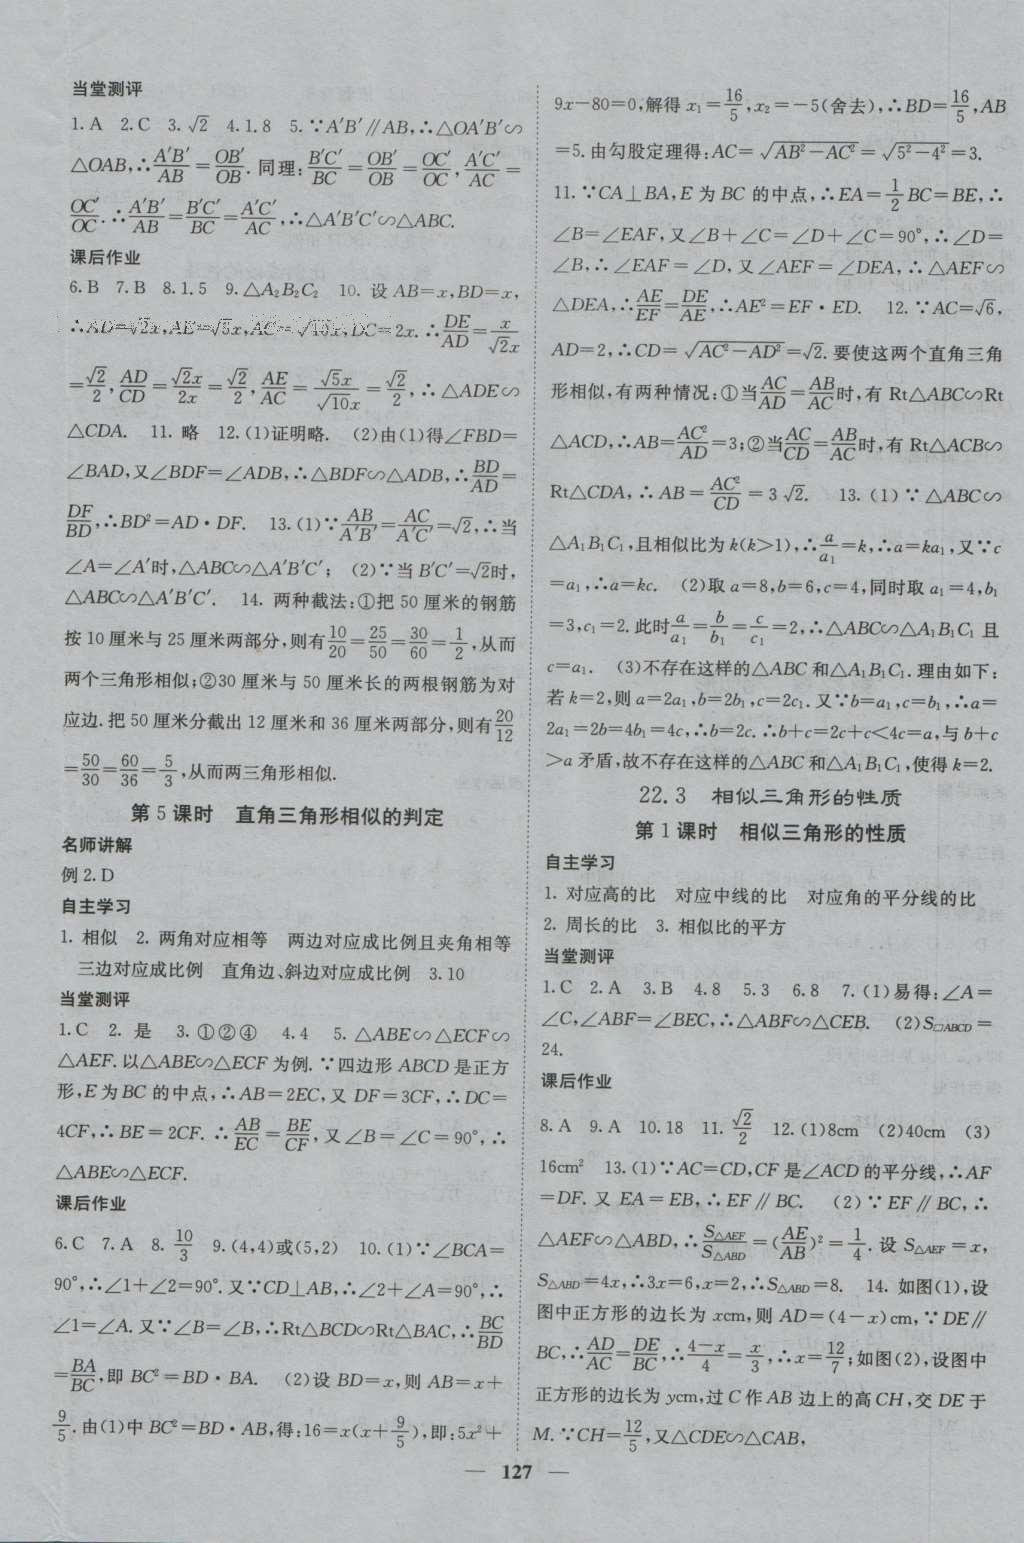 当堂测评
1.A 2.C 3.√2 4.1.8 5.∵A′B′∥AB,∴△OA′B′∽
△OAB,∴A′B′/AB=OB′/OB.同理:B′C′/BC=OB′/OB=OC′/OC,A′C′/AC=
OC′/OC.∴A′B′/AB=B′C′/BC=A′C′/AC,∴△A′B′C′∽△ABC.
课后作业
6.B 7.B 8.1.5 9.△A₂B₂C₂ 10.设AB=x,BD=x,
∴AD=√2x,AE=√5x,AC=√10x,DC=2x.∴DE/AD=x/√2x
=√2/2,AD/CD=√2x/2x=√2/2,AE/AC=√5x/√10x=√2/2,∴△ADE∽
△CDA. 11.略 12.(1)证明略. (2)由(1)得∠FBD=
∠BAD,又∠BDF=∠ADB,∴△BDF∽△ADB,∴BD/AD=
DF/BD,∴BD²=AD·DF. 13.(1)∵AB/A′B′=AC/A′C′=√2,∴当
∠A=∠A′时,△ABC∽△A′B′C′; (2)∵当B′C′=√2时,
△ABC∽△A′B′C′. 14.两种截法:①把50厘米的钢筋
按10厘米与25厘米两部分,则有10/20=25/50=30/60=1/2,从而
两个三角形相似;②30厘米与50厘米长的两根钢筋为对
应边.把50厘米分截出12厘米和36厘米两部分,则有20/12
=50/30=60/36=5/3,从而两三角形相似.
第5课时 直角三角形相似的判定
名师讲解
例2.D
自主学习
1.相似 2.两角对应相等 两边对应成比例且夹角相等
三边对应成比例 直角边、斜边对应成比例 3.10
当堂测评
1.C 2.是 3.①②④ 4.4 5.△ABE∽△ECF∽
△AEF.以△ABE∽△ECF为例.∵四边形ABCD是正方
形,E为BC的中点,∴AB=2EC,又DF=3CF,∴DC=
4CF,∴BE=2CF.∴AB/EC=BE/CF,又∠B=∠C=90°,∴
△ABE∽△ECF.
课后作业
6.C 7.A 8.10/3 9.(4,4)或(5,2) 10.(1)∵∠BCA=
90°,∴∠1+∠2=90°.又∵CD⊥AB,∴∠2+∠A=90°,∴
∠1=∠A.又∵∠B=∠B,∴Rt△BCD∽Rt△BAC,∴BC/BD
=BA/BC,即BC²=BD·BA. (2)设BD=x,则AB=x+
9/5.由(1)中BC²=BD·AB,得:16=x(x+9/5),即:5x²+
9x-80=0,解得x₁=16/5,x₂=-5(舍去),∴BD=16/5,AB
=5.由勾股定理得:AC=√(AB²-AC²)=√(5²-4²)=3.
11.∵CA⊥BA,E为BC的中点,∴EA=1/2BC=BE,∴
∠B=∠EAF,又∠B+∠C=∠D+∠C=90°,∴∠D=
∠B,∴∠EAF=∠D,又∠AEF=∠DEA,∴△AEF∽
△DEA,∴AE/EF=DE/AE,∴AE²=EF·ED. 12.∵AC=√6,
AD=2,∴CD=√(AC²-AD²)=√2.要使这两个直角三角
形相似,有两种情况:①当AC/AD=AB/AC时,有Rt△ABC∽Rt
△ACD,∴AB=AC²/AD=3;②当AC/CD=AB/AC时,有Rt△ACB∽
Rt△CDA,∴AB=AC²/CD=3√2. 13.(1)∵△ABC∽
△A₁B₁C₁,且相似比为k(k>1),∴a/a₁=k,∴a=ka₁,又∵c
=a₁,∴a=kc. (2)取a=8,b=6,c=4,同时取a₁=4,b₁
=3,c₁=2.此时a/a₁=b/b₁=c/c₁=2,∴△ABC∽△A₁B₁C₁且
c=a₁. (3)不存在这样的△ABC和△A₁B₁C₁.理由如下:
若k=2,则a=2a₁,b=2b₁,c=2c₁.又∵b=a₁,c=b₁,∴a=
2a₁=2b=4b₁=4c,∴b=2c.∴b+c=2c+c<4c=a,与b+c
>a矛盾,故不存在这样的△ABC和△A₁B₁C₁,使得k=2.
22.3 相似三角形的性质
第1课时 相似三角形的性质
自主学习
1.对应高的比 对应中线的比 对应角的平分线的比
2.周长的比 3.相似比的平方
当堂测评
1.C 2.A 3.B 4.8 5.3 6.8 7.(1)易得:∠A=
∠C,∠ABF=∠BEC,∴△ABF∽△CEB. (2)S▱ABCD=
24.
课后作业
8.A 9.A 10.18 11.√2/2 12.(1)8cm (2)40cm (3)
16cm² 13.(1)∵AC=CD,CF是∠ACD的平分线,∴AF
=DF.又EA=EB,∴EF∥BC. (2)∵EF∥BC,∴
△AEF∽△ABD,∴S△AEF/S△ABD=(AE/AB)²=1/4.设S△AEF=x,
S△ABD=4x,∴3x=6,x=2,∴S△ABD=8. 14.如图(1),设
图中正方形的边长为xcm,则AD=(4-x)cm,∵DE∥
BC,∴AD/AC=DE/BC,∴(4-x)/4=x/3,∴x=12/7;如图(2),设图中
正方形的边长为ycm,过C作AB边上的高CH,交DE于
M.∵CH=12/5,又△CDE∽△CAB,
— 127 —